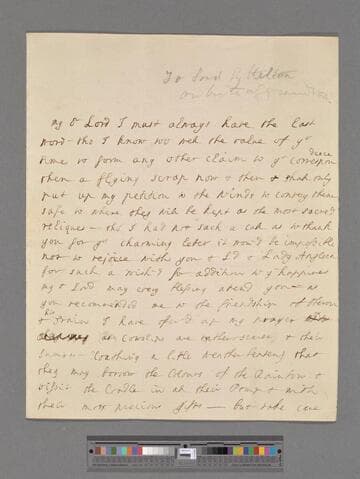 To Lord Lyttelton
on birth of grandson
my Dr Lord I must always have the last
word — tho I know too well the value of yr
time to form any other claim to yr correspon
dence
then a flying scrap now & then & shall only
put up my petition to the Winds to convey them
safe to where they will be kept as the most sacred
reliques — tho I had not such a call as to thank
you for yr charming letter it wou'd be impossible
not to rejoice with you & Ld & Lady Anglesea
for such a wish'd for addition to yr happiness
my Dr Lord may every blessing attend you — as
you recommended me to the friendship of
& I have up my
are rather scarce & their
a little that
they may borrow the Colours of the Rainbow &
the Cradle in all their Pomp & with
their most precious gifts — but take care